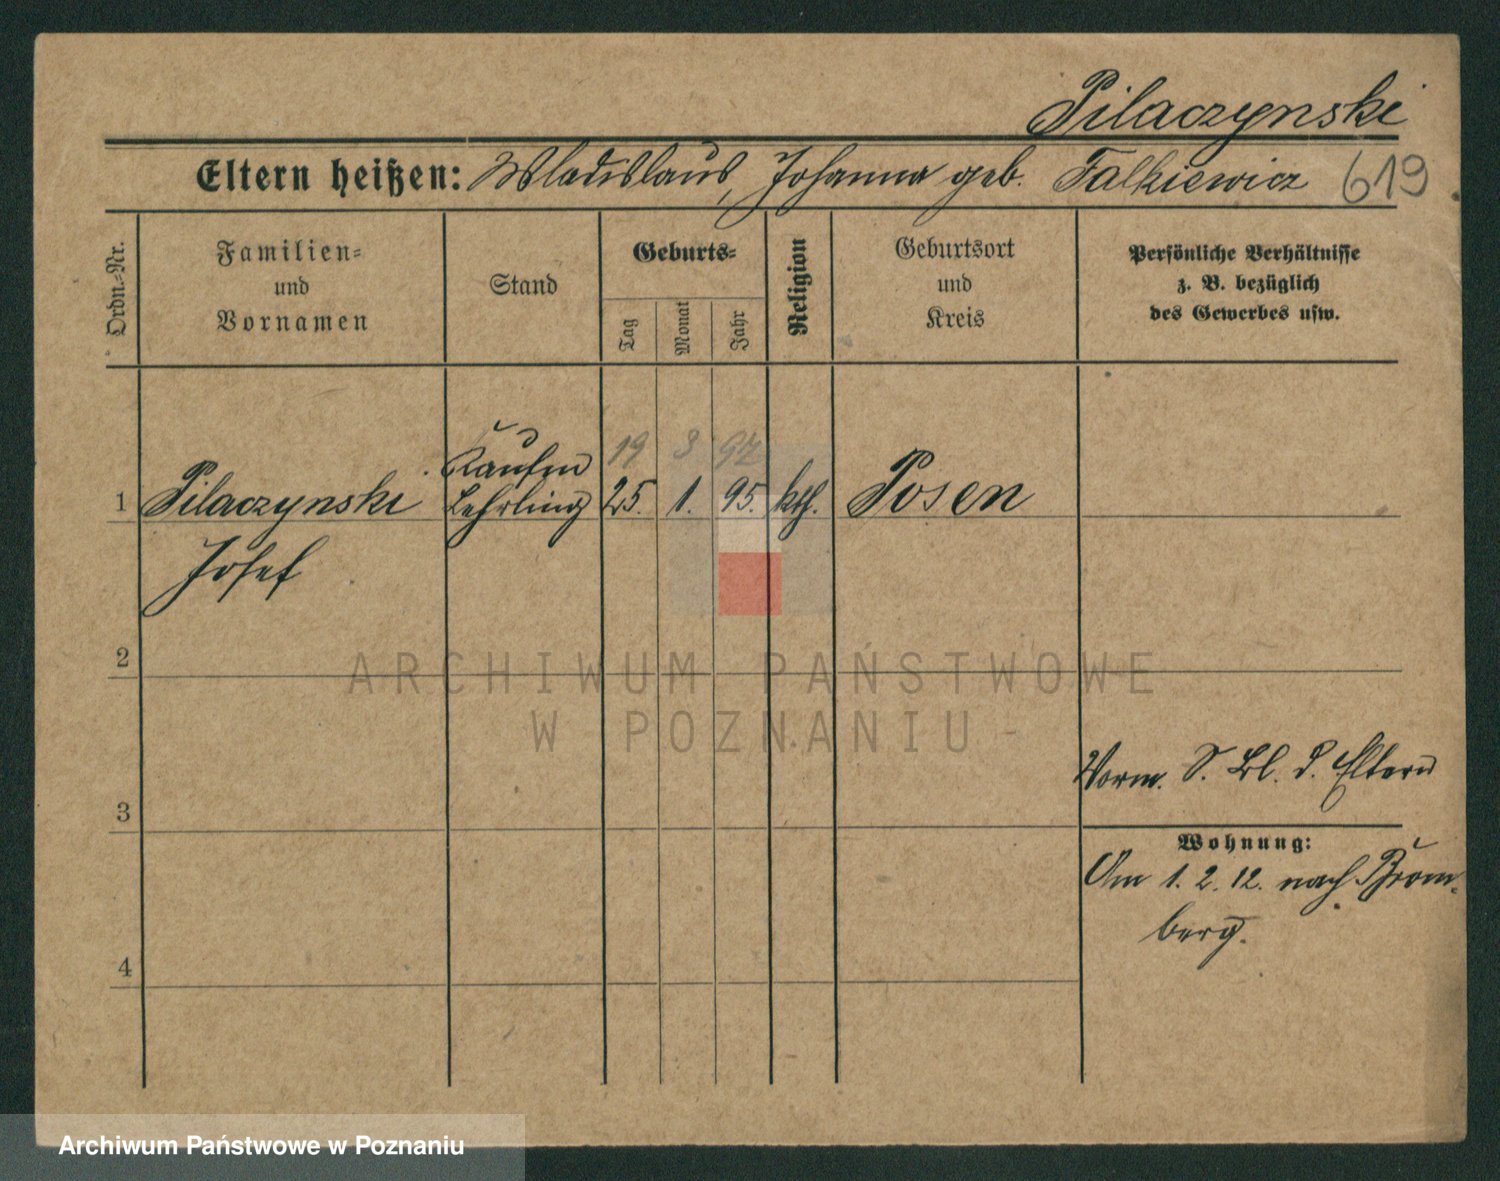 Pilaczynski
Eltern heißen: Wladislaus, Johanna geb. Falkiewicz 619
Ordn.-Nr.
Familien-
und
Vornamen
Stand
Geburts-
Tag
Monat
Jahr
Religion
Geburtsort
und
Kreis
Persönliche Verhältnisse
z. B. bezüglich
des Gewerbes usw.
Kaufm 19 3 97
1 Pilaczynski Lehrling 25. 1. 95. kth. Posen
Josef
2
ARCHIWUM PAŃSTWOWE
W POZNANIU
Vorm. S. Bl. d. Eltern
3
Wohnung:
Am 1. 2. 12. nach Brom-
berg.
4
Archiwum Państwowe w Poznaniu